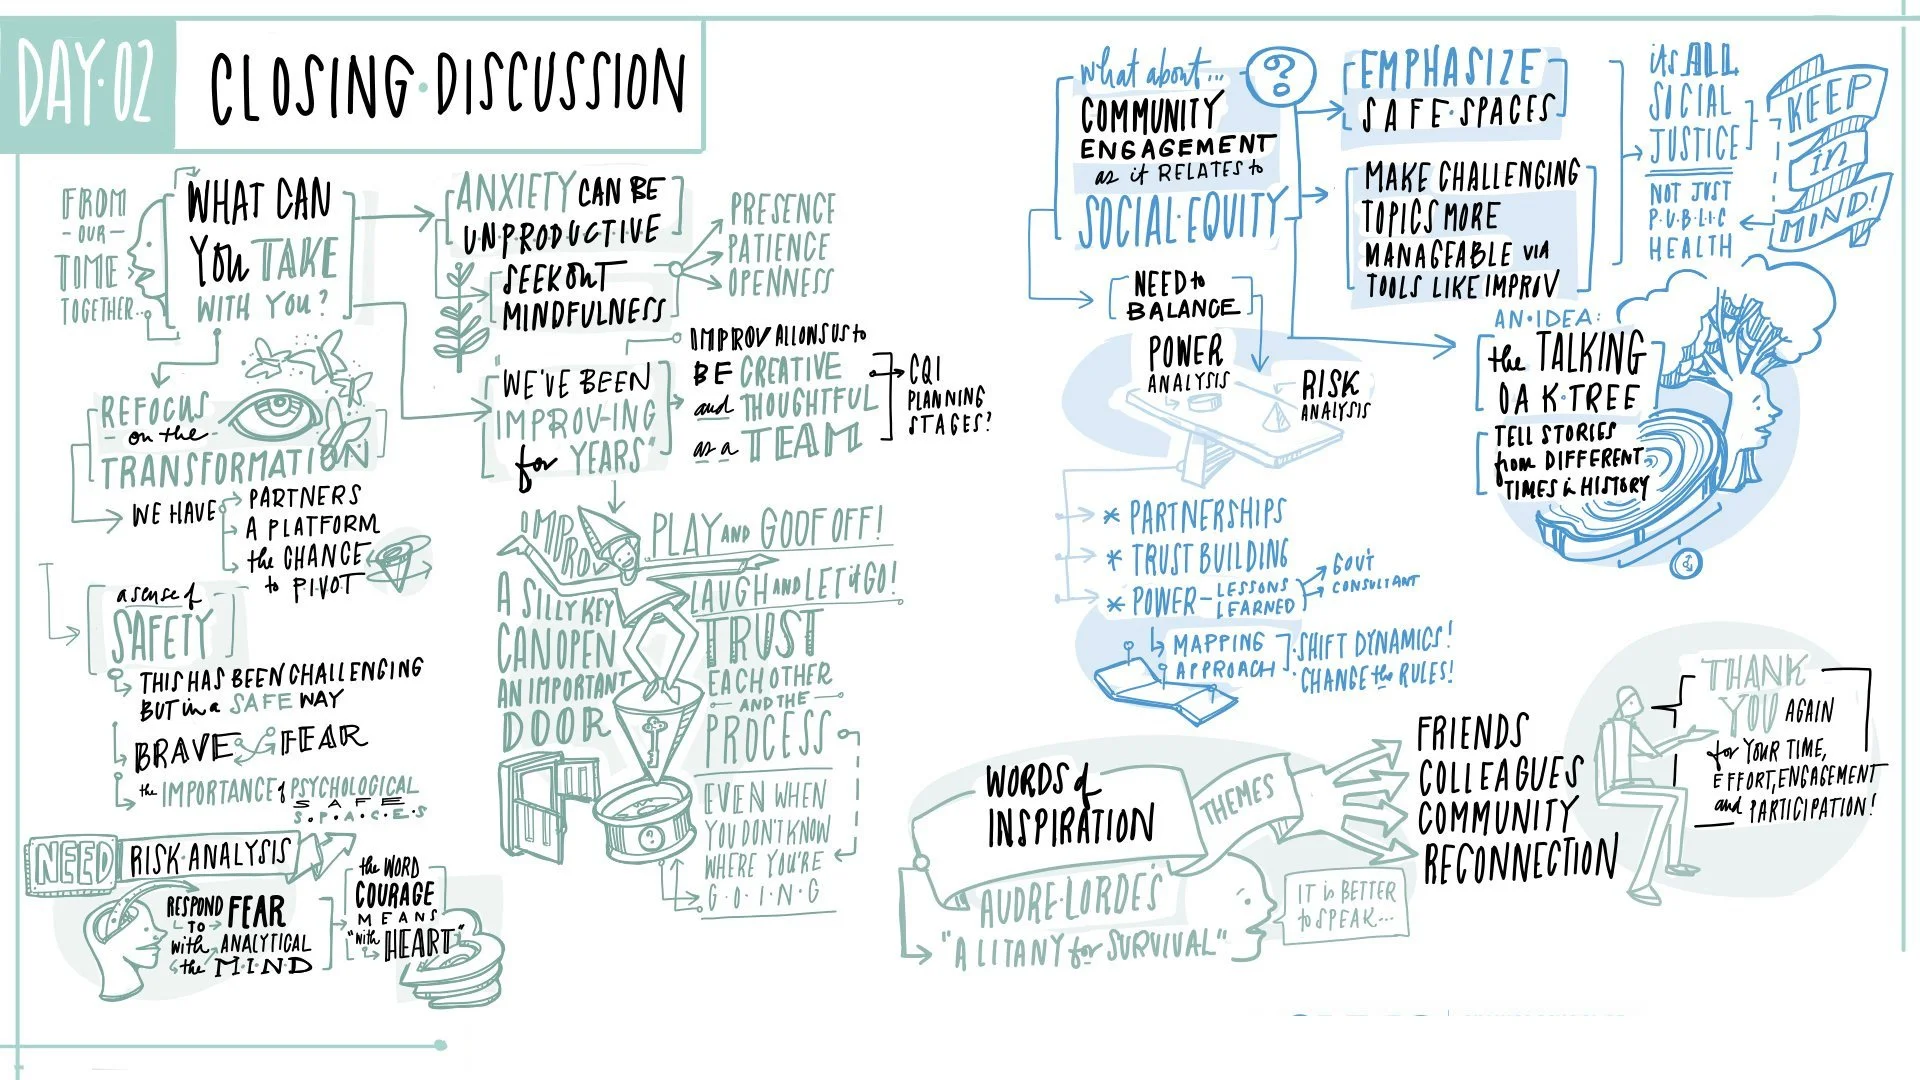 DAY·02
CLOSING·DISCUSSION
FROM
-OUR-
TIME
TOGETHER...
WHAT CAN
YOU TAKE
WITH YOU?
ANXIETY CAN BE
UNPRODUCTIVE
SEEK OUT
MINDFULNESS
PRESENCE
PATIENCE
OPENNESS
REFOCUS
-on the-
TRANSFORMATION
WE HAVE
PARTNERS
A PLATFORM
the CHANCE
to PIVOT
"WE'VE BEEN
IMPROV-ING
for YEARS"
IMPROV ALLOWS US to
BE CREATIVE
and THOUGHTFUL
as a TEAM
CQI
PLANNING
STAGES?
a sense of
SAFETY
THIS HAS BEEN CHALLENGING
BUT in a SAFE WAY
BRAVE
FEAR
the IMPORTANCE of PSYCHOLOGICAL
SAFE
S·P·A·C·E·S
IMPROV
A SILLY KEY
CAN OPEN
AN IMPORTANT
DOOR
PLAY AND GOOF OFF!
LAUGH AND LET it GO!
TRUST
EACH OTHER
- AND THE -
PROCESS
EVEN WHEN
YOU DON'T KNOW
WHERE YOU'RE
G·O·I·N·G
?
NEED RISK·ANALYSIS
RESPOND
TO FEAR
with ANALYTICAL
the M·I·N·D
the WORD
COURAGE
MEANS
"with HEART"
what about...
?
COMMUNITY
ENGAGEMENT
as it RELATES to
SOCIAL·EQUITY
EMPHASIZE
SAFE·SPACES
MAKE CHALLENGING
TOPICS MORE
MANAGEABLE VIA
TOOLS LIKE IMPROV
its ALL
SOCIAL
JUSTICE
NOT JUST
P·U·B·L·I·C
HEALTH
KEEP
in
MIND!
NEED to
BALANCE
POWER
ANALYSIS
RISK
ANALYSIS
AN·IDEA:
the TALKING
OAK·TREE
TELL STORIES
from DIFFERENT
TIMES in HISTORY
* PARTNERSHIPS
* TRUST BUILDING
* POWER - LESSONS
LEARNED
GOV'T
CONSULTANT
MAPPING
APPROACH
SHIFT DYNAMICS!
CHANGE the RULES!
WORDS of
INSPIRATION
THEMES
FRIENDS
COLLEAGUES
COMMUNITY
RECONNECTION
AUDRE·LORDE'S
"A LITANY for SURVIVAL"
IT is BETTER
to SPEAK...
THANK
YOU AGAIN
for YOUR TIME,
EFFORT, ENGAGEMENT
and PARTICIPATION!